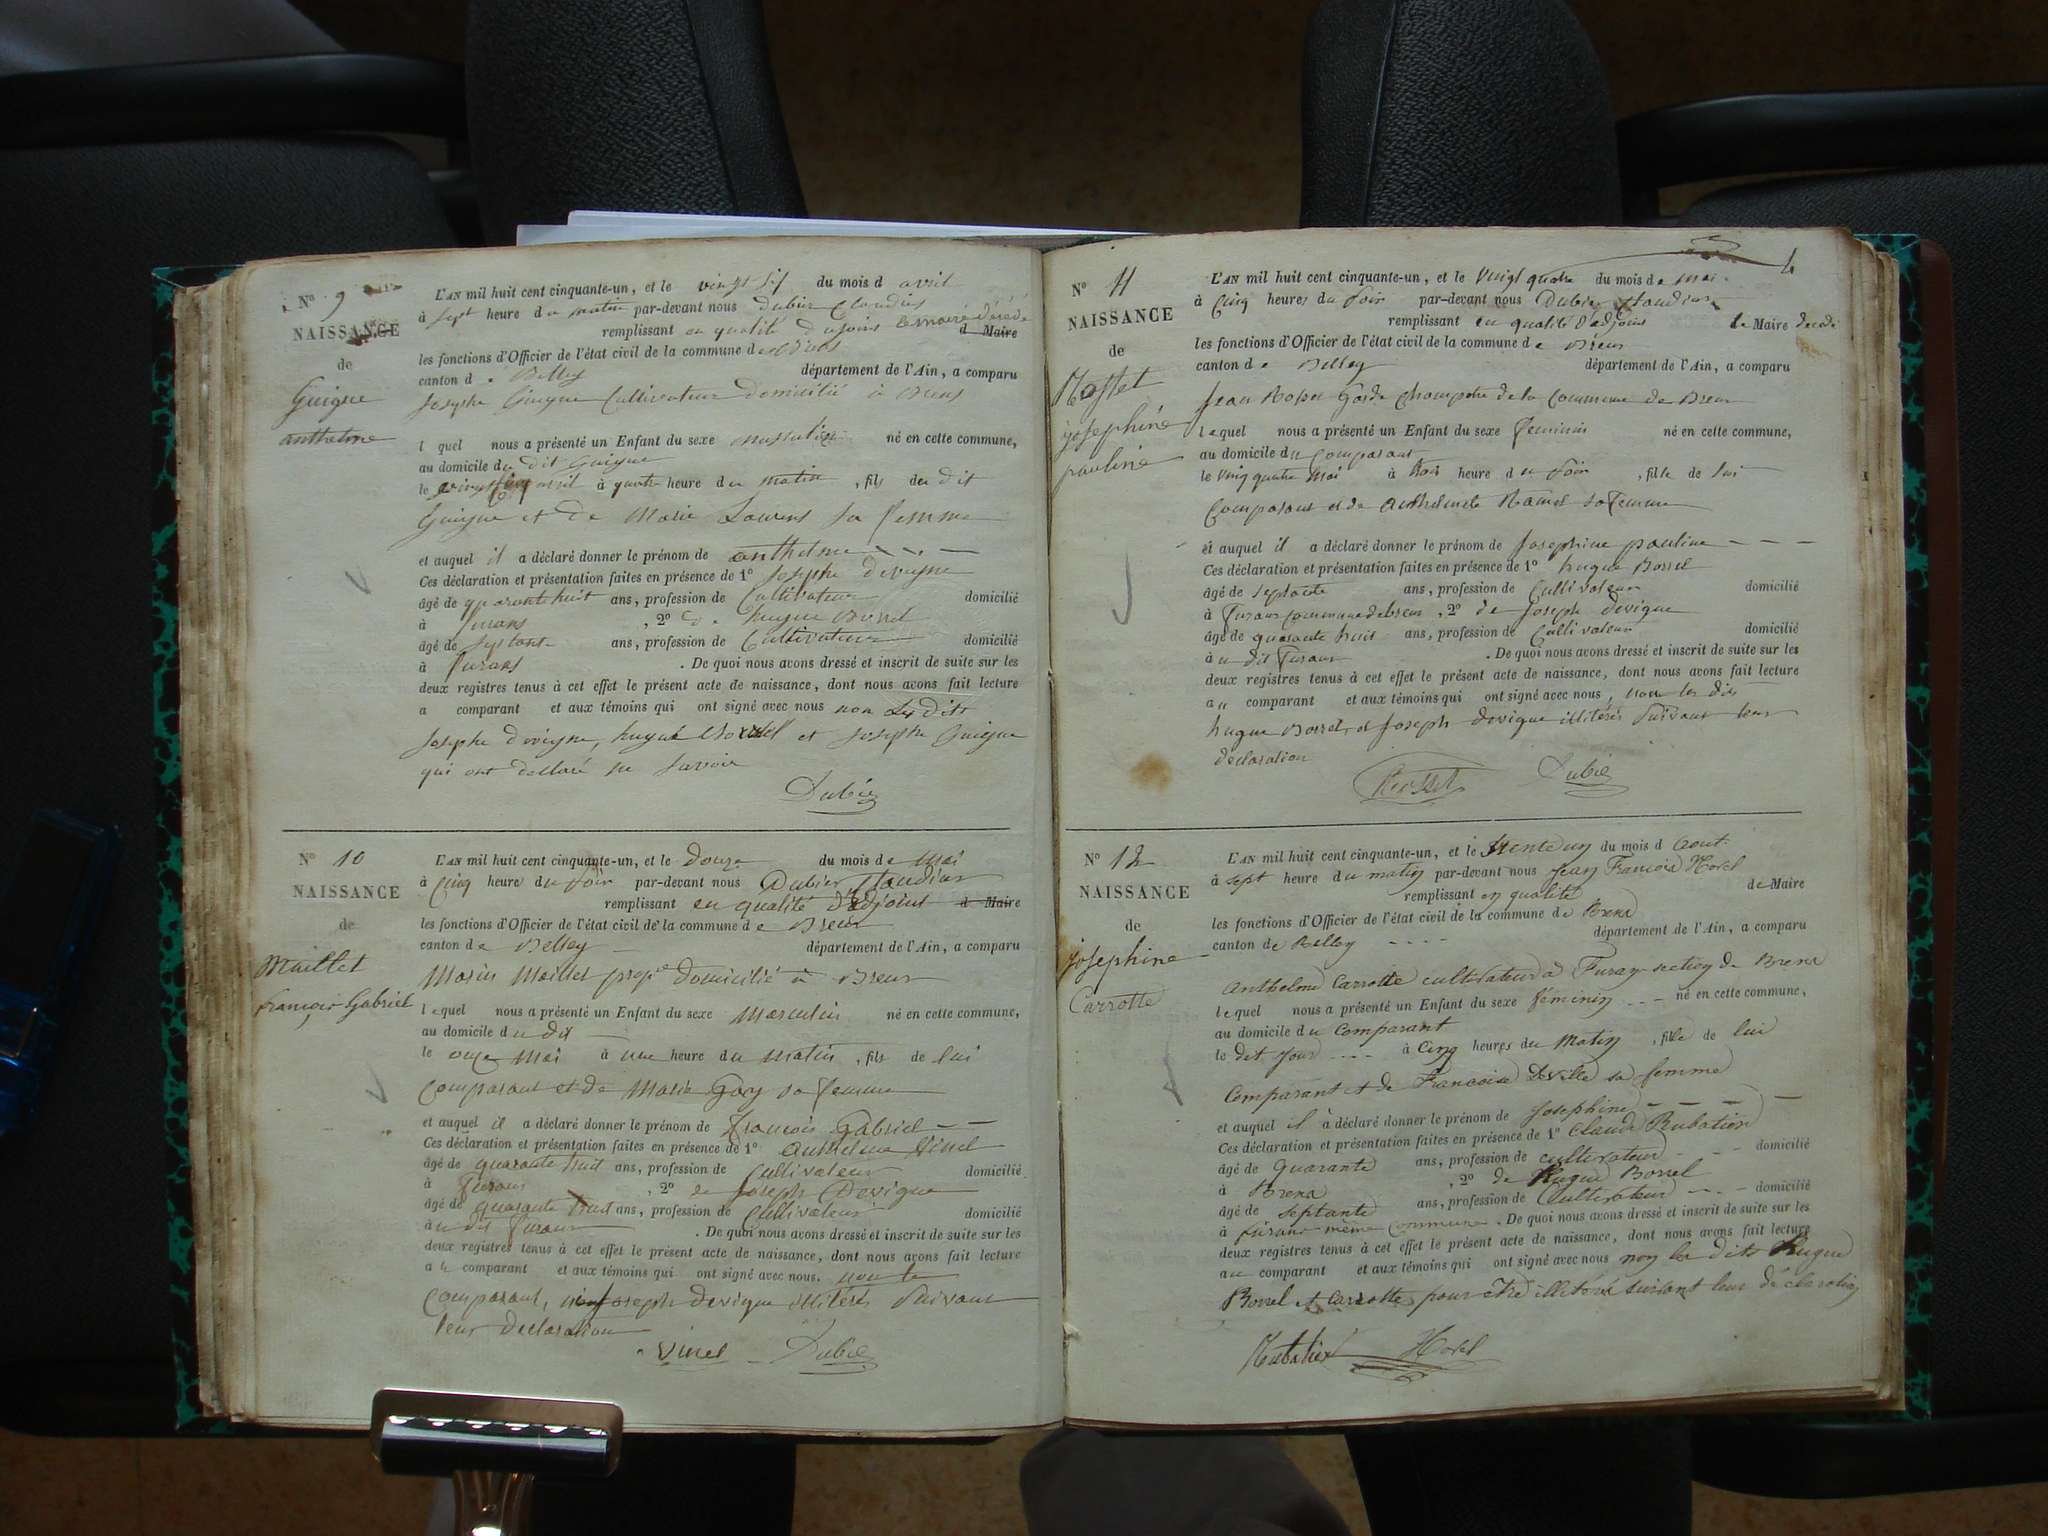 N° 9
NAISSANCE
de
Guigue
anthelme
L'AN mil huit cent cinquante-un, et le vingt six du mois d avril
à sept heure du matin par-devant nous Dubie Claudius
remplissant en qualité d'ajoint le maire décédé d Maire
les fonctions d'Officier de l'état civil de la commune de
canton de Belley département de l'Ain, a comparu
Joseph Guigue Cultivateur domicilié à Brens
l quel nous a présenté un Enfant du sexe masculin né en cette commune,
au domicile du dit Guigue
le vingt avril à quatre heure du matin, fils du dit
Guigue et de Marie Laurent sa femme
et auquel il a déclaré donner le prénom de anthelme
Ces déclaration et présentation faites en présence de 1° Joseph devigne
âgé de quarante huit ans, profession de Cultivateur domicilié
à furans, 2° de hugue Borrel
âgé de septante ans, profession de Cultivateur domicilié
à furans. De quoi nous avons dressé et inscrit de suite sur les
deux registres tenus à cet effet le présent acte de naissance, dont nous avons fait lecture
a comparant et aux témoins qui ont signé avec nous non les dits
Joseph devigne, hugue Borrel et Joseph Guigue
qui ont déclaré ne savoir
Dubie
N° 10
NAISSANCE
de
Maillet
françois Gabriel
L'AN mil huit cent cinquante-un, et le douze du mois de Mai
à Cinq heure du soir par-devant nous Dubie Claudius
remplissant en qualité d'adjoint d Maire
les fonctions d'Officier de l'état civil de la commune de Brens
canton de Belley département de l'Ain, a comparu
Marin Maillet prop.re domicilié à Brens
lequel nous a présenté un Enfant du sexe Masculin né en cette commune,
au domicile du dit
le onze Mai à une heure du matin, fils de lui
Comparant et de Marie Gory sa femme
et auquel il a déclaré donner le prénom de françois Gabriel
Ces déclaration et présentation faites en présence de 1° anthelme Vinel
âgé de quarante huit ans, profession de Cultivateur domicilié
à furans, 2° de Joseph Devigue
âgé de quarante huit ans, profession de Cultivateur domicilié
à u dit furans. De quoi nous avons dressé et inscrit de suite sur les
deux registres tenus à cet effet le présent acte de naissance, dont nous avons fait lecture
au comparant et aux témoins qui ont signé avec nous. non le
Comparant, Joseph devigue illitérés suivant
leur déclaration
Vinel Dubie
4
N° 11
NAISSANCE
de
Rosset
josephine
pauline
L'AN mil huit cent cinquante-un, et le vingt quatre du mois de mai
à Cinq heures du soir par-devant nous Dubie Claudius
remplissant en qualité d'adjoint de Maire décédé
les fonctions d'Officier de l'état civil de la commune de Brens
canton de Belley département de l'Ain, a comparu
Jean Rosset Garde Champetre de la Commune de Brens
lequel nous a présenté un Enfant du sexe feminin né en cette commune,
au domicile du Comparant
le vingt quatre Mai à trois heure du soir, fille de lui
Comparant et de anthelmete Ramel sa femme
et auquel il a déclaré donner le prénom de Josephine pauline
Ces déclaration et présentation faites en présence de 1° hugue Borrel
âgé de septante ans, profession de Cultivateur domicilié
à furans commune de brens, 2° de Joseph devigue
âgé de quarante huit ans, profession de Cultivateur domicilié
à u dit furans. De quoi nous avons dressé et inscrit de suite sur les
deux registres tenus à cet effet le présent acte de naissance, dont nous avons fait lecture
au comparant et aux témoins qui ont signé avec nous, non les dits
hugue Borrel, et Joseph devigue illitérés suivant leur
déclaration
Rosset Dubie
N° 12
NAISSANCE
de
josephine
Carrotte
L'AN mil huit cent cinquante-un, et le trente un du mois d Aout
à sept heure du matin par-devant nous Jean François Morel
remplissant en qualité de Maire
les fonctions d'Officier de l'état civil de la commune de Brens
canton de Belley département de l'Ain, a comparu
Anthelme Carrotte cultivateur à Furans section de Brens
lequel nous a présenté un Enfant du sexe féminin né en cette commune,
au domicile du Comparant
le dit jour à Cinq heures du Matin, fille de lui
Comparant et de Françoise Deville sa femme
et auquel il a déclaré donner le prénom de Josephine
Ces déclaration et présentation faites en présence de 1° Claude Rubatier
âgé de Quarante ans, profession de cultivateur domicilié
à Brens, 2° de Hugue Borrel
âgé de septante ans, profession de Cultivateur domicilié
à furans même Commune. De quoi nous avons dressé et inscrit de suite sur les
deux registres tenus à cet effet le présent acte de naissance, dont nous avons fait lecture
au comparant et aux témoins qui ont signé avec nous non les dits Hugue
Borrel et Carrotte, pour etre illitéré suivant leur déclaration
Rubatier Morel